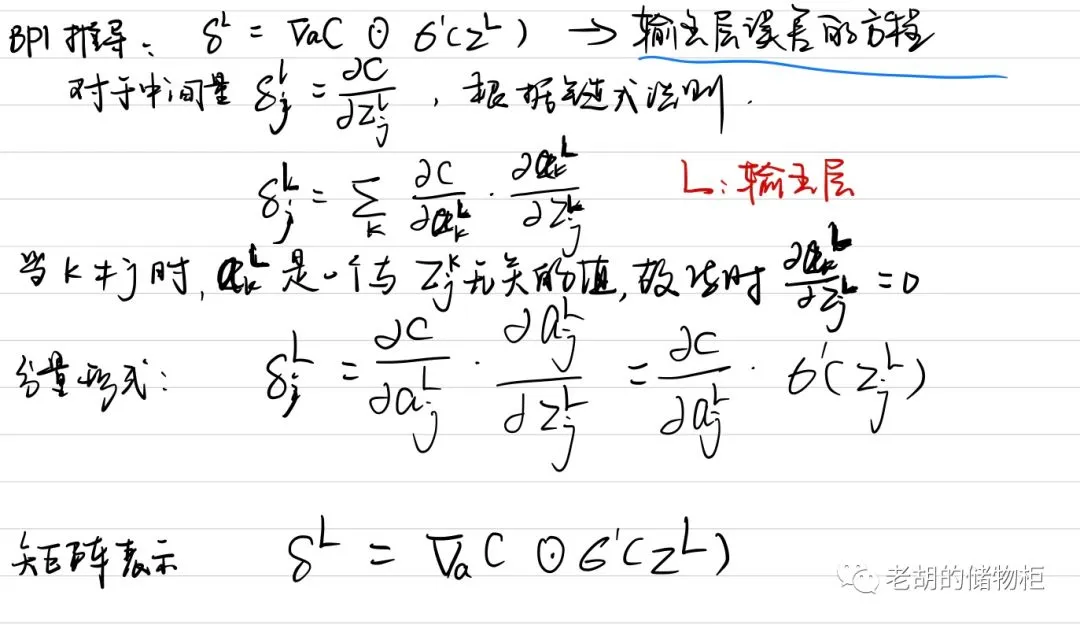 BP1推导: δ^L = ∇aC ⊙ σ'(z^L) → 输出层误差的方程
对于中间量 δ_j^L = ∂C/∂z_j^L , 根据链式法则.
δ_j^L = Σ_k ∂C/∂a_k^L · ∂a_k^L/∂z_j^L L: 输出层
当 k≠j 时, a_k^L 是一个与 z_j^L 无关的值, 故此时 ∂a_k^L/∂z_j^L = 0
分量形式: δ_j^L = ∂C/∂a_j^L · ∂a_j^L/∂z_j^L = ∂C/∂a_j^L · σ'(z_j^L)
矩阵表示 δ^L = ∇aC ⊙ σ'(z^L)
老胡的储物柜